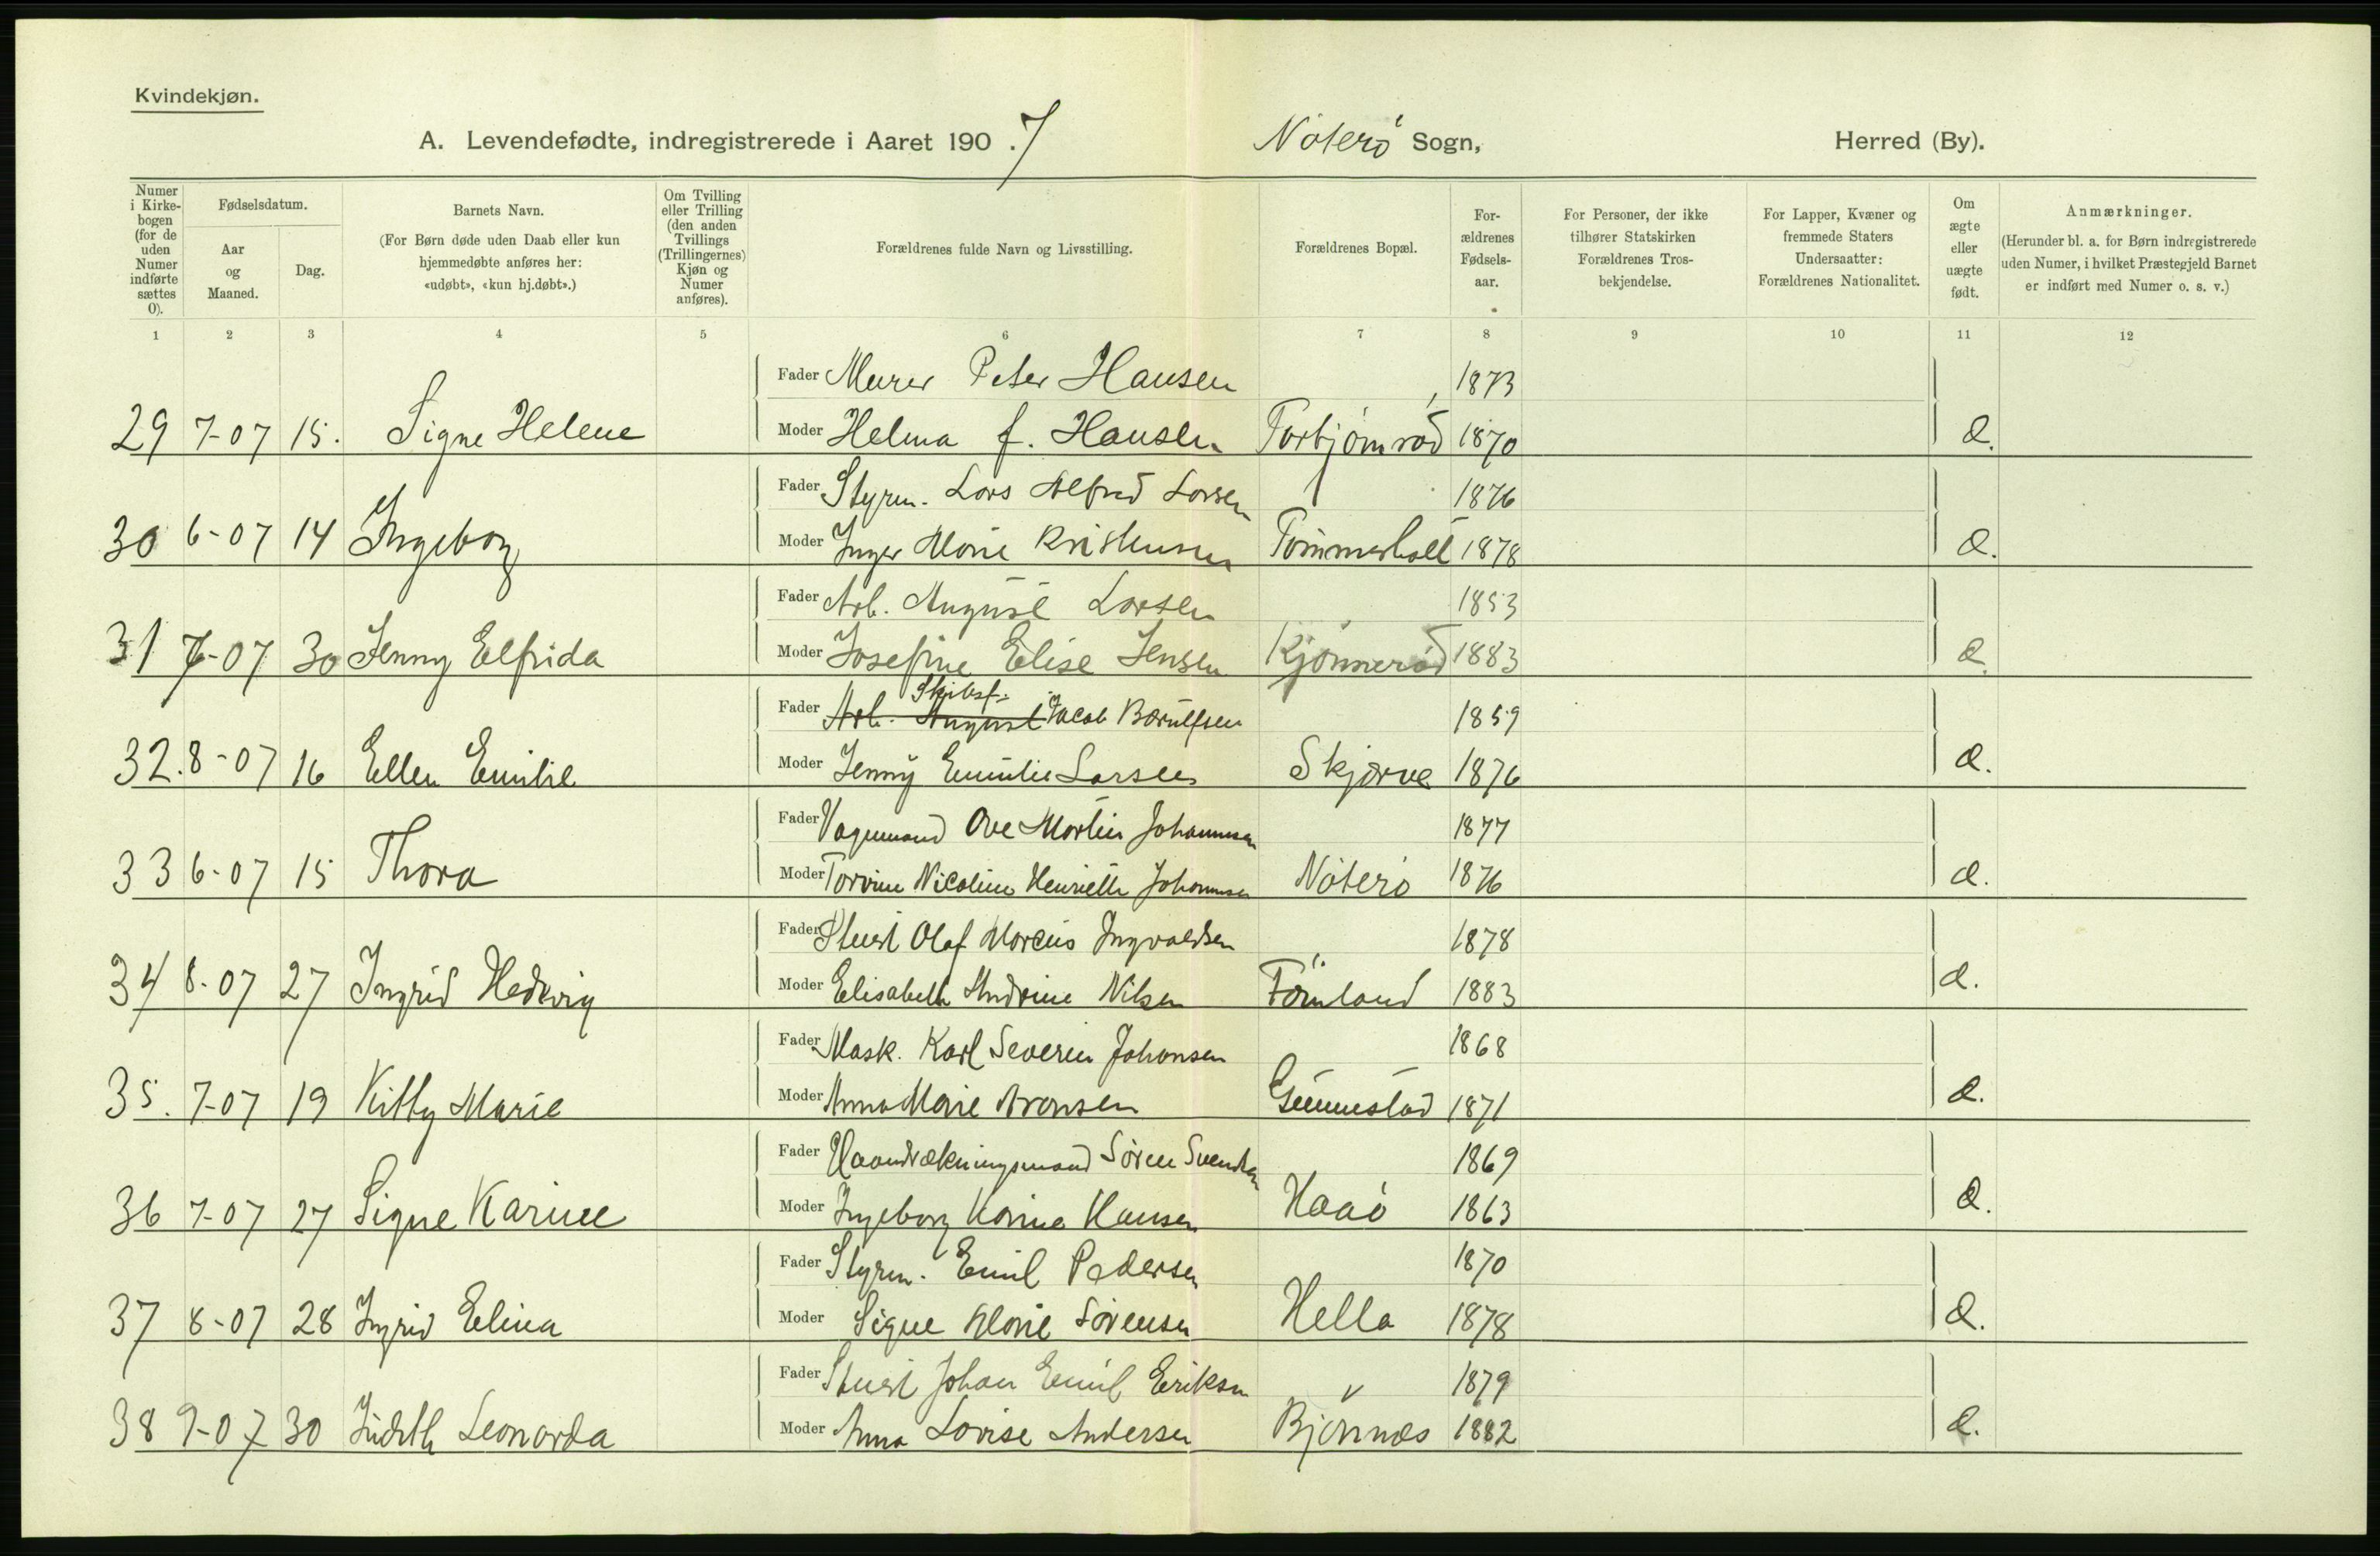 Kvindekjøn.
A. Levendefødte, indregistrerede i Aaret 190.7 Nøterø Sogn, Herred (By).
Numer i Kirke-bogen (for de uden Numer indførte sættes 0).
Fødselsdatum.
Aar og Maaned.
Dag.
Barnets Navn.
(For Børn døde uden Daab eller kun hjemmedøbte anføres her: «udøbt», «kun hj.døbt».)
Om Tvilling eller Trilling (den anden Tvillings (Trillingernes) Kjøn og Numer anføres).
Forældrenes fulde Navn og Livsstilling.
Forældrenes Bopæl.
For-ældrenes Fødsels-aar.
For Personer, der ikke tilhører Statskirken Forældrenes Tros-bekjendelse.
For Lapper, Kvæner og fremmede Staters Undersaatter: Forældrenes Nationalitet.
Om ægte eller uægte født.
Anmærkninger.
(Herunder bl. a. for Børn indregistrerede uden Numer, i hvilket Præstegjeld Barnet er indført med Numer o. s. v.)
1 2 3 4 5 6 7 8 9 10 11 12
Fader Murer Peter Hansen 1873
29 7-07 15. Signe Helene Moder Helma f. Hansen Torbjørnrød 1870
Fader Styrm. Lars Alfred Larsen 1876
30 6-07 14 Ingeborg Moder Inger Marie Kristensen Tømmerholt 1878
Fader Arb. August Larsen 1853
31 7-07 30 Jenny Elfrida Moder Josefine Elise Jensen Kjønnerød 1883
Skibsf.
Fader Arb. August Jacob Bærulfsen 1859
32. 8-07 16 Ellen Emilie Moder Jenny Emilie Larsen Skjærve 1876
Fader Vognmand Ove Martin Johannesen 1877
33 6-07 15 Thora Moder Torvine Nicoline Henriette Johannesen Nøterø 1876
Fader Stuert Olaf Marcus Ingvaldsen 1878
34 8-07 27 Ingrid Hedvig Moder Elisabeth Andrine Nilsen Førnland 1883
Fader Mask. Karl Severin Johansen 1868
35. 7-07 19 Kitty Marie Moder Anna Marie Aronsen Gunnestad 1871
Fader Haandrækningsmand Søren Svendsen 1869
36 7-07 27 Signe Karine Moder Ingeborg Karine Hansen Haaø 1863
Fader Styrm. Emil Pedersen 1870
37 8-07 28 Ingrid Elina Moder Signe Marie Sørensen Hella 1878
Fader Stuert Johan Emil Eriksen 1879
38 9-07 30 Judith Leonarda Moder Anna Lovise Andersen Bjørnnes 1882